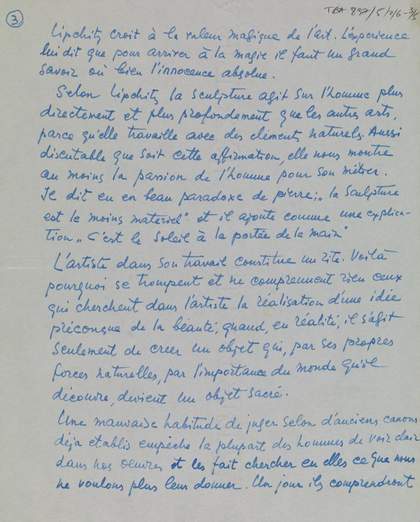 3
TGA 897/5/1/6-3/6
Lipchitz croit à la valeur magique de l'art. L'expérience
lui dit que pour arriver à la magie il faut un grand
savoir ou bien l'innocence absolue.
Selon Lipchitz la sculpture agit sur l'homme plus
directement et plus profondement que les autres arts,
parce qu'elle travaille avec des elements naturels. Aussi
discutable que soit cette affirmation, elle nous montre
au moins la passion de l'homme pour son métier.
Il dit en un beau paradoxe de pierre: „la sculpture
est le moins materiel" et il ajoute comme une explica-
tion „C'est le Soleil à la portée de la main"
L'artiste dans son travail constitue un rite. Voilà
pourquoi se trompent et ne comprennent rien ceux
qui cherchent dans l'artiste la réalisation d'une idée
préconçue de la beauté, quand, en réalité, il s'agit
seulement de creer un objet qui, par ses propres
forces naturelles, par l'importance du monde qu'il
décou­vre, devient un objet sacré.
Une mauvaise habitude de juger selon d'anciens canons
déja etablis empêche la plupart des hommes de voir clair
dans nos oeuvres et les fait chercher en elles ce que nous
ne voulons plus leur donner. Un jour ils comprendront